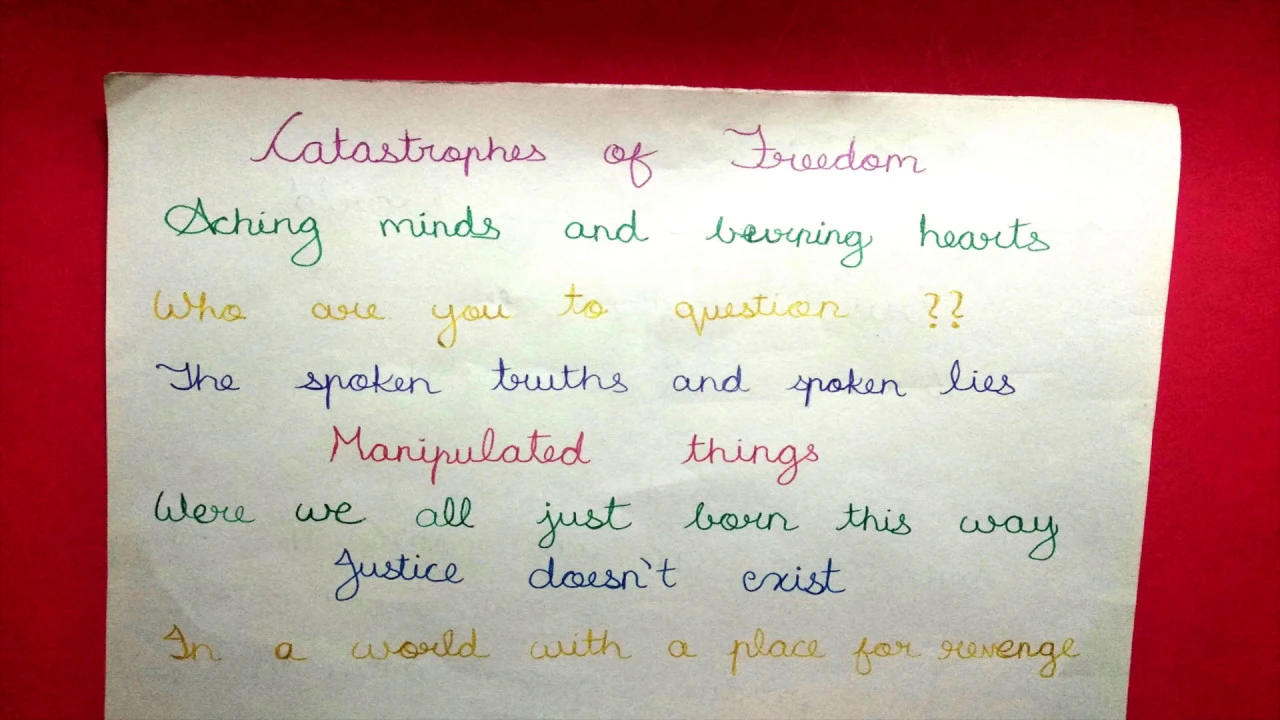 Catastrophes of Freedom
Aching minds and burning hearts
Who are you to question ??
The spoken truths and spoken lies
Manipulated things
Were we all just born this way
Justice doesn't exist
In a world with a place for revenge